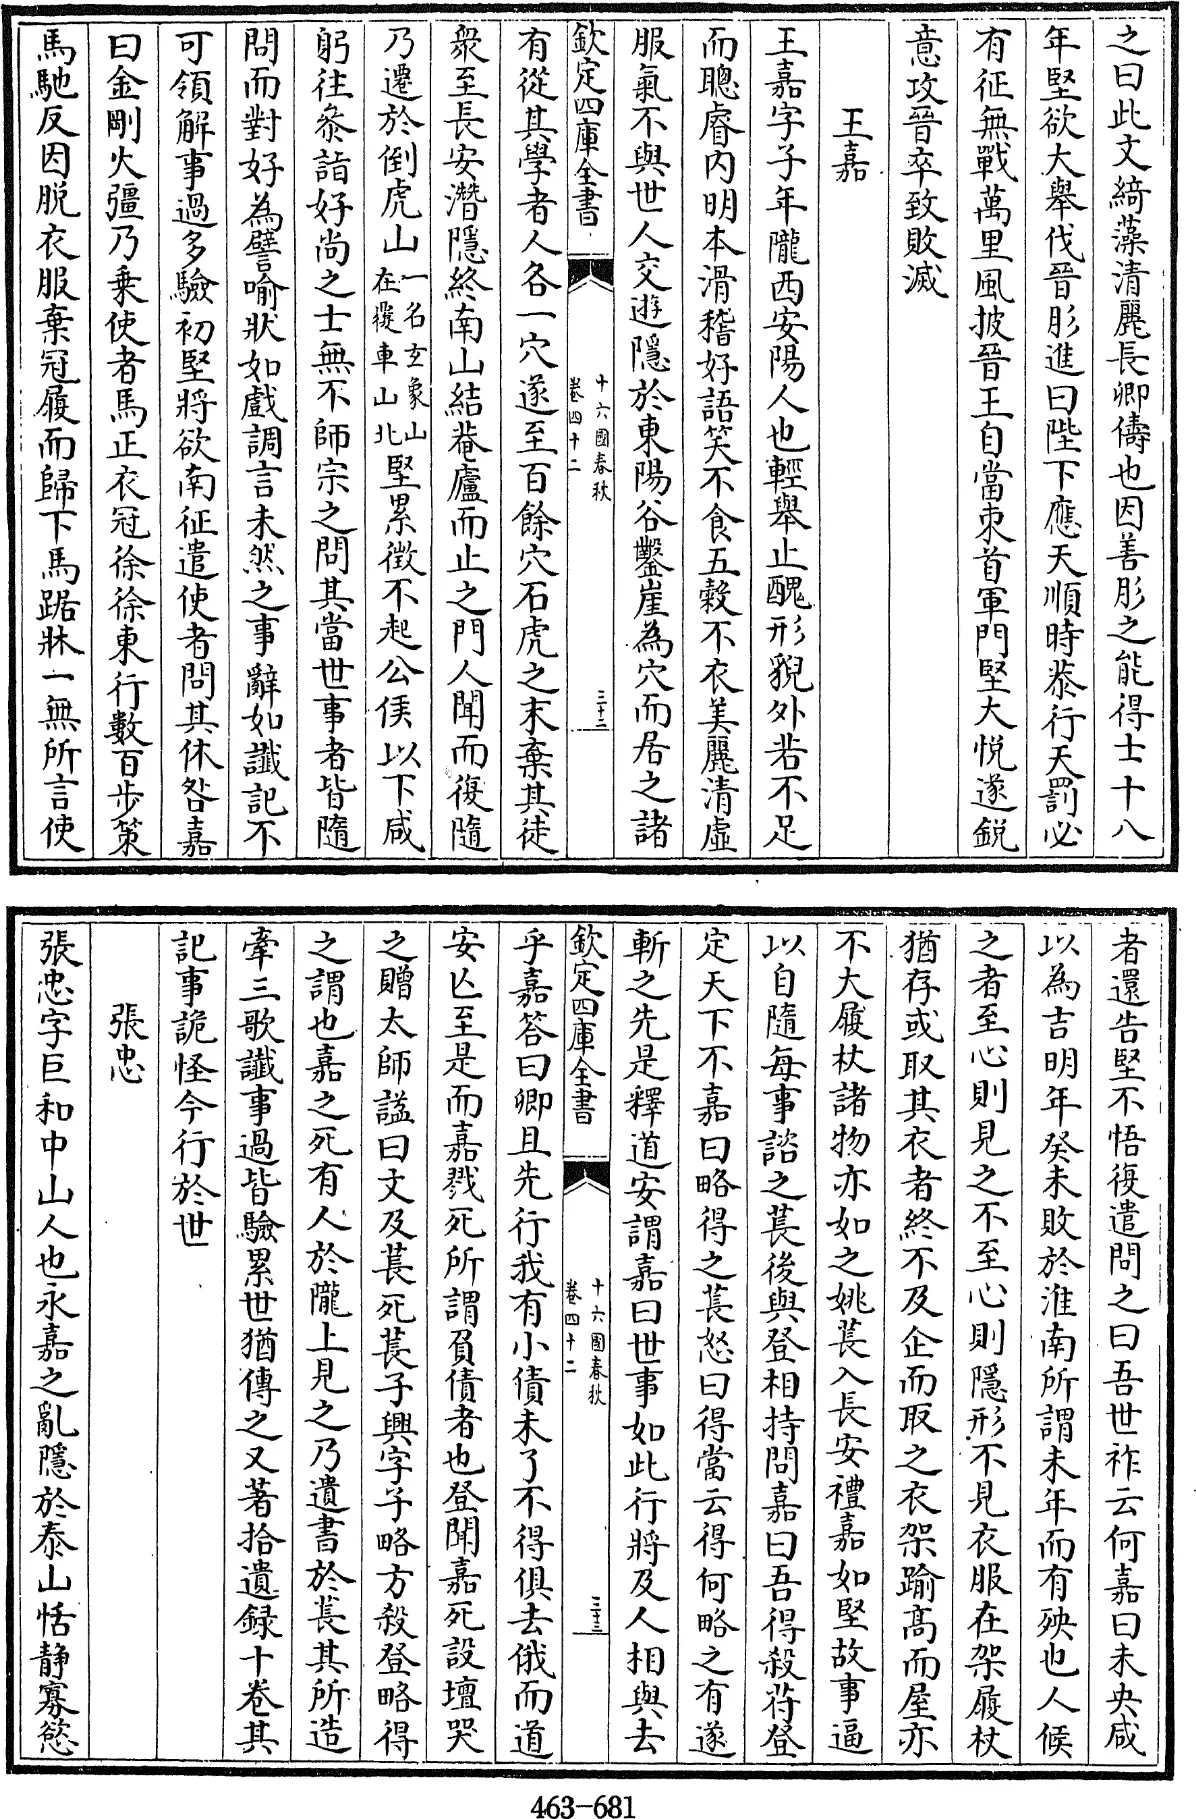 之曰此文綺藻清麗長卿儔也因善肜之能得士十八
年堅欲大舉伐晉肜進曰陛下應天順時恭行天罰必
有征無戰萬里風披晉王自當束首軍門堅大悦遂鋭
意攻晉卒致敗滅
王嘉
王嘉字子年隴西安陽人也輕舉止醜形貌外若不足
而聰睿内明本滑稽好語笑不食五穀不衣美麗清虚
服氣不與世人交遊隱於東陽谷鑿崖為穴而居之諸
欽定四庫全書
十六國春秋
卷四十二
三十二
有從其學者人各一穴遂至百餘穴石虎之末棄其徒
衆至長安潛隱終南山結菴廬而止之門人聞而復隨
乃遷於倒虎山一名玄象山在渡車山北堅累徴不起公侯以下咸
躬往叅詣好尚之士無不師宗之問其當世事者皆隨
問而對好為譬喻狀如戲調言未然之事辭如讖記不
可領解事過多驗初堅將欲南征遣使者問其休咎嘉
曰金剛火彊乃乗使者馬正衣冠徐徐東行數百步策
馬馳反因脱衣服棄冠履而歸下馬踞牀一無所言使
者還告堅不悟復遣問之曰吾世祚云何嘉曰未央咸
以為吉明年癸未敗於淮南所謂未年而有殃也人候
之者至心則見之不至心則隱形不見衣服在架履杖
猶存或取其衣者終不及企而取之衣架踰髙而屋亦
不大履杖諸物亦如之姚萇入長安禮嘉如堅故事逼
以自隨每事諮之萇後與登相持問嘉曰吾得殺苻登
定天下不嘉曰略得之萇怒曰得當云得何略之有遂
斬之先是釋道安謂嘉曰世事如此行將及人相與去
欽定四庫全書
十六國春秋
卷四十二
三十三
乎嘉答曰卿且先行我有小債未了不得俱去俄而道
安亾至是而嘉戮死所謂負債者也登聞嘉死設壇哭
之贈太師諡曰文及萇死萇子興字子略方殺登略得
之謂也嘉之死有人於隴上見之乃遺書於萇其所造
牽三歌讖事過皆驗累世猶傳之又著拾遺録十卷其
記事詭怪今行於世
張忠
張忠字巨和中山人也永嘉之亂隱於泰山恬静寡慾
463-681